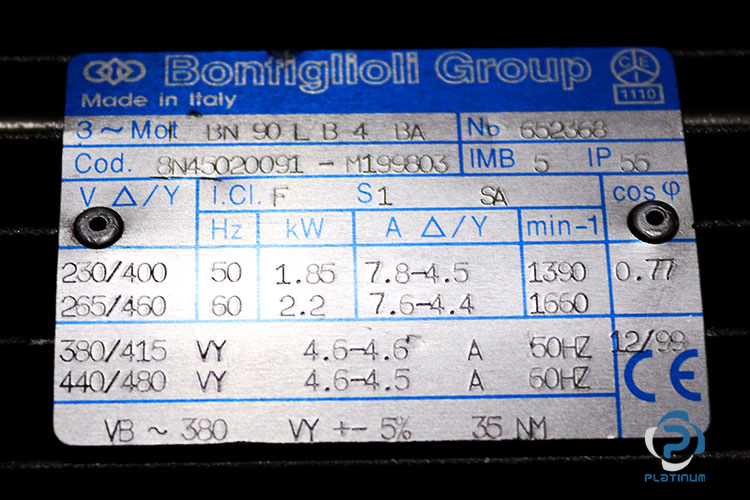 Bonfiglioli Group
CE I
1110
Made in Italy
3~Mott BN 90 L B 4 BA No 652368
Cod. 8N45020091 - M199803 IMB 5 IP 55
V Δ/Y I.Cl. F S1 SA cos φ
Hz kW A Δ/Y min-1
230/400 50 1.85 7.8-4.5 1390 0.77
265/460 60 2.2 7.6-4.4 1660
380/415 VY 4.6-4.6 A 50HZ 12/99
440/480 VY 4.6-4.5 A 60HZ
CE
VB ~ 380 VY +- 5% 35 NM
PLATINUM